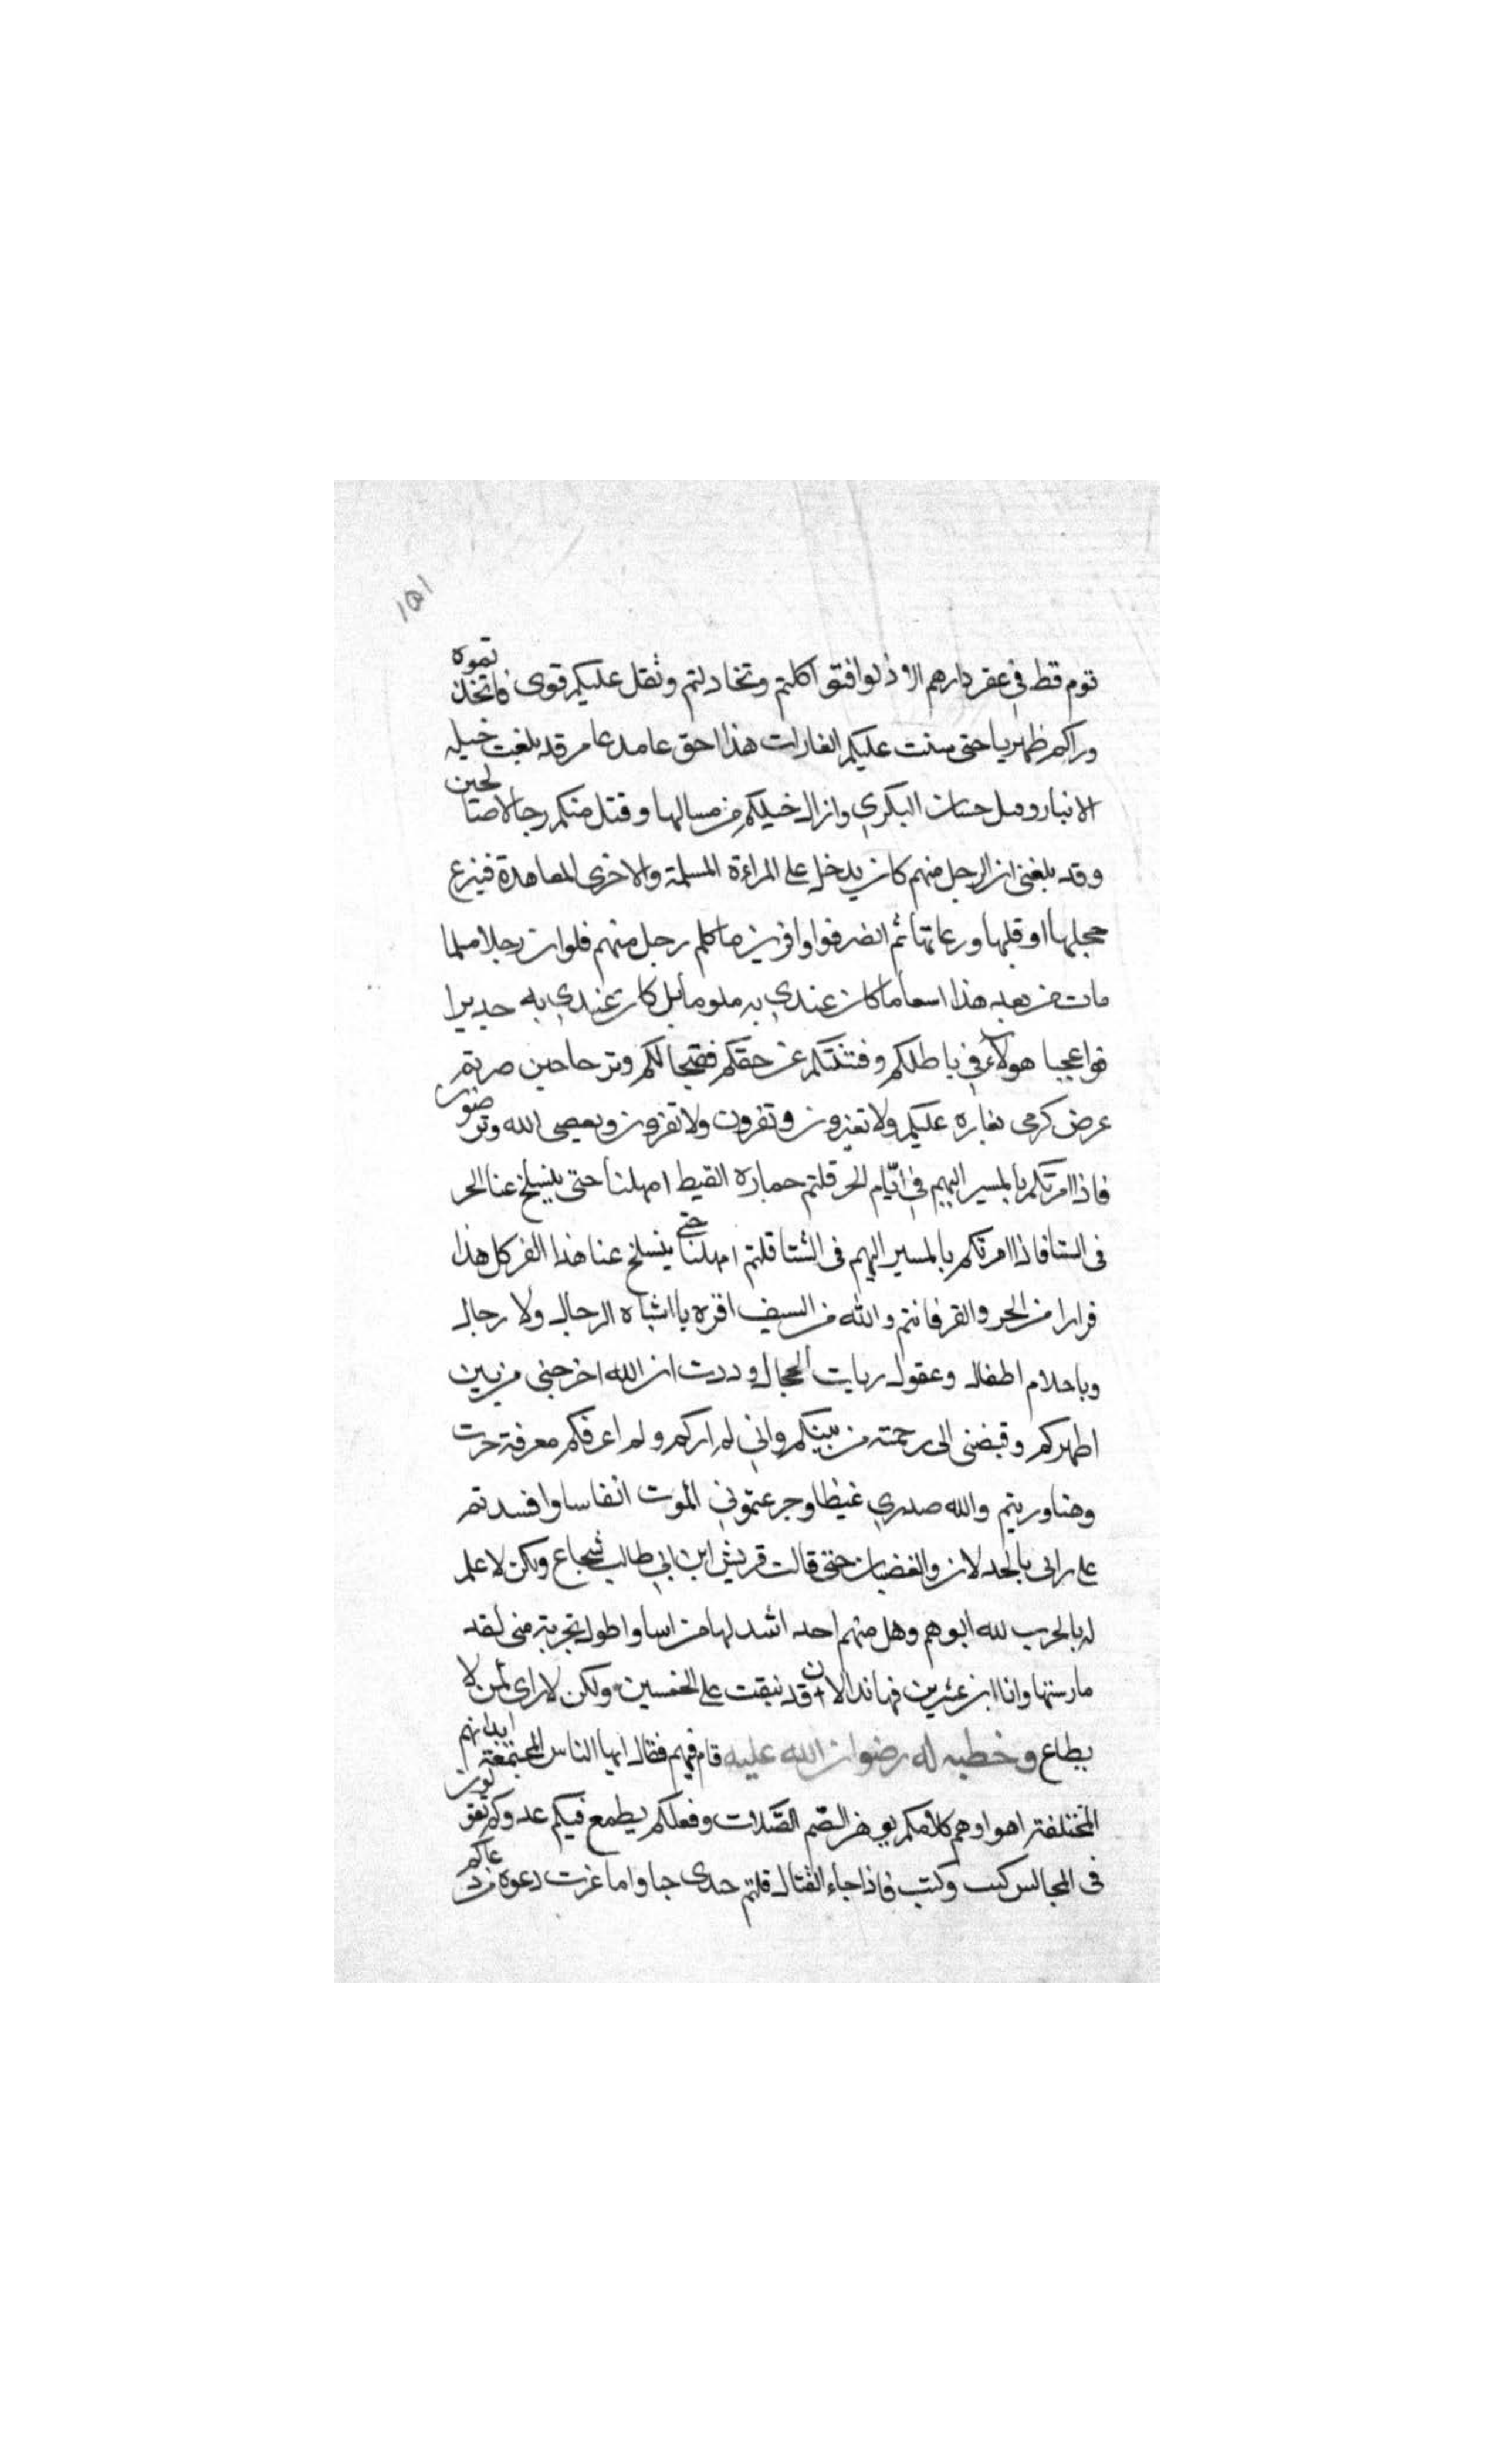 ١٥١
قوم قط في عقر دارهم الا ذلوا فتواكلتم وتخاذلتم وثقل عليكم قوى فاتخذتموه
وراكم ظهريا حتى سنت عليكم الغارات هذا احق عامد عامر قد بلغت خيله
الانبار وقتل حسان البكري وازال خيلكم من مسالها وقتل منكم رجالا صالحين
وقد بلغنى ان الرجل منهم كان يدخل على المراءة المسلمة والاخرى المعاهدة فينزع
حجلها او قلبها ورعاتها ثم انصرفوا وافرين ما كلم رجل منهم فلو ان رجلا مسلما
مات من بعد هذا اسفا ما كان عندي به ملوما بل كان عندي به جديرا
فواعجبا هولاء في باطلكم وفتنتكم عن حقكم فقبحا لكم وترحا حين صرتم
عرض كرمى يغاره عليكم ولا تغيرون وتغرون ولا تغزون ويعصى الله وترضون
فاذا امرتكم بالمسير اليهم في ايّام الحر قلتم حمارة القيط امهلنا حتى ينسلخ عنا الحر
فى الستا فاذا امرتكم بالمسير اليهم فى الشتا قلتم امهلنا حتى ينسلخ عنا هذا القر كل هذا
فرارا من الحر والقر فانتم والله من السيف افره يا اشباه الرجال ولا رجال
ويا حلام اطفال وعقول ربات الحجال وددت ان الله اخرجنى من بين
اظهركم وقبضنى الى رحمته من بينكم واني لم اركم ولم اعرفكم معرفة جرت
وهنا وريتم والله صدري غيظا وجرعتموني الموت انفاسا وافسدتم
على رايى بالخدلان والغضيان حتى قالت قريش ابن ابي طالب شجاع ولكن لا علم
له بالحرب لله ابوهم وهل منهم احد اشد لها مراسا واطول تجربة منى لقد
مارستها وانا ابن عشرين فهاندا الان قد نيقت على الخمسين ولكن لا راى لمن لا
يطاع وخطبه له رضوان الله عليه قام فيهم فقال ايها الناس المجتمعة ابدانهم
المختلفة اهواوهم كلامكم يوهن الصّم الصّلاب وفعلكم يطمع فيكم عدوكم تقولون
فى المجالس كيت وكيت فاذا جاء القتال قلتم حيدى حيا واما غزت دعوة من دعاكم